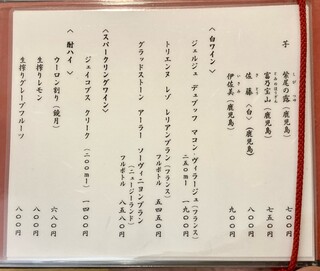 芋
紫尾の露(鹿児島) 七〇〇円
富乃宝山(鹿児島) 七五〇円
佐藤(白)(鹿児島) 八〇〇円
伊佐美(鹿児島) 九〇〇円
〈白ワイン〉
ジェルジュ デュブッフ マコン ヴィラージュ(フランス)
二五〇ml 一九〇〇円
トリエンヌ レゾ レリアンブラン(フランス)
フルボトル 五四五〇円
グラッドストーン アーラー ソーヴィニヨンブラン
(ニュージーランド)
フルボトル 八五八〇円
〈スパークリングワイン〉
ジェイコブス クリーク (二〇〇ml) 一四〇〇円
〈酎ハイ〉
ウーロン割り(鏡月) 六八〇円
生搾りレモン 八〇〇円
生搾りグレープフルーツ 八〇〇円